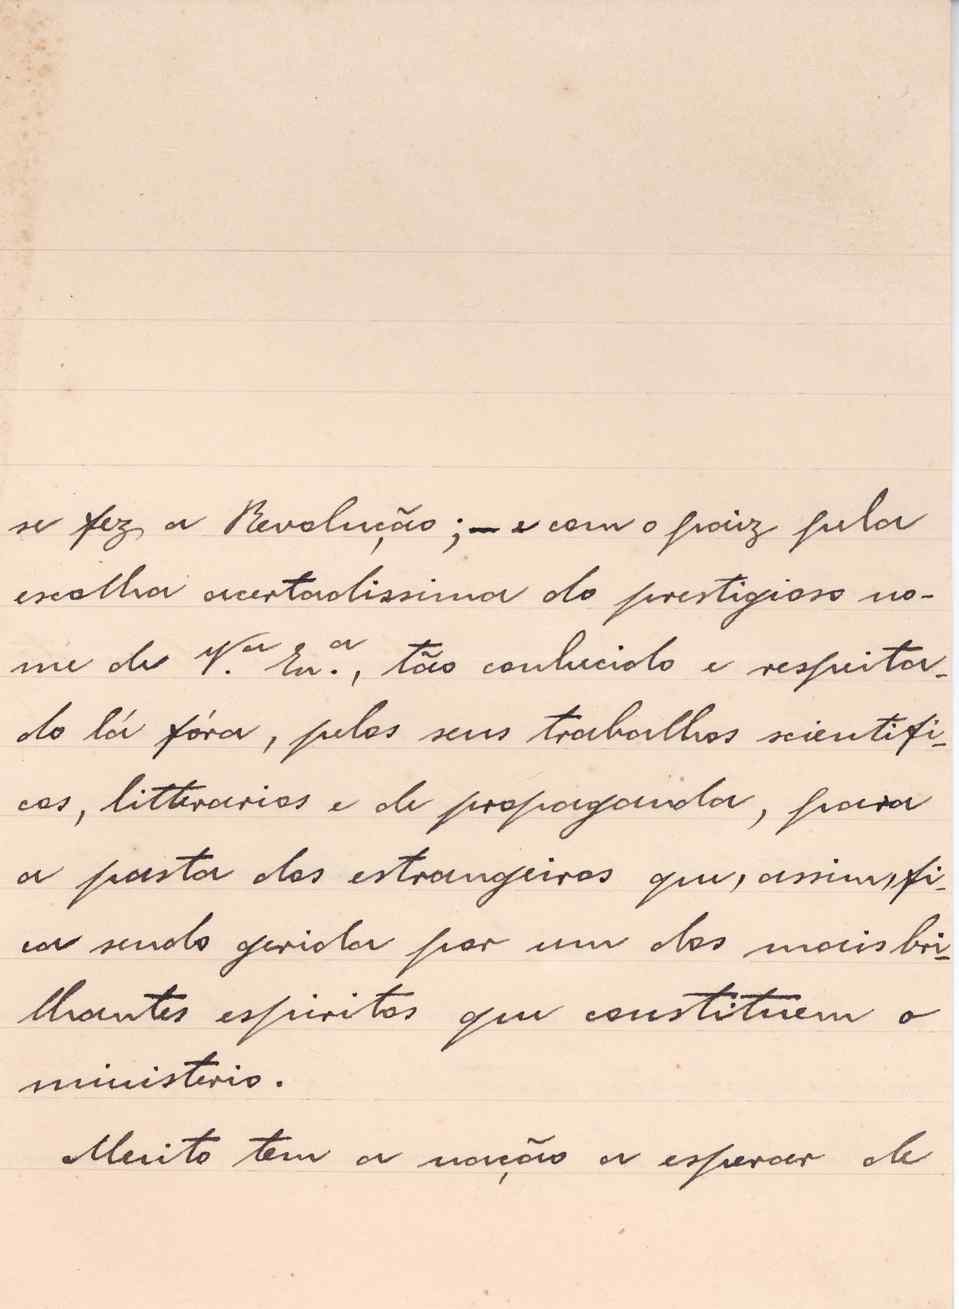 se fez a Revolução; — e com o paiz pela
escolha acertadissima do prestigioso no-
me de V.ª Ex.ª, tão conhecido e respeita-
do lá fóra, pelos seus trabalhos scientifi-
cos, litterarios e de propaganda, para
a pasta dos estrangeiros que, assim, fi-
ca sendo gerida por um dos mais bri-
lhantes espiritos que constituem o
ministerio.
Muito tem a nação a esperar de